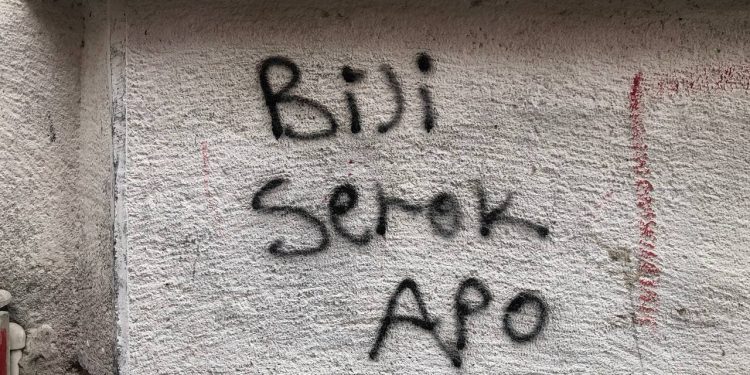 Biji
Serok
APO